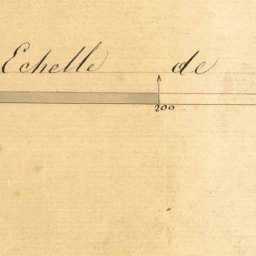 Echelle de
200